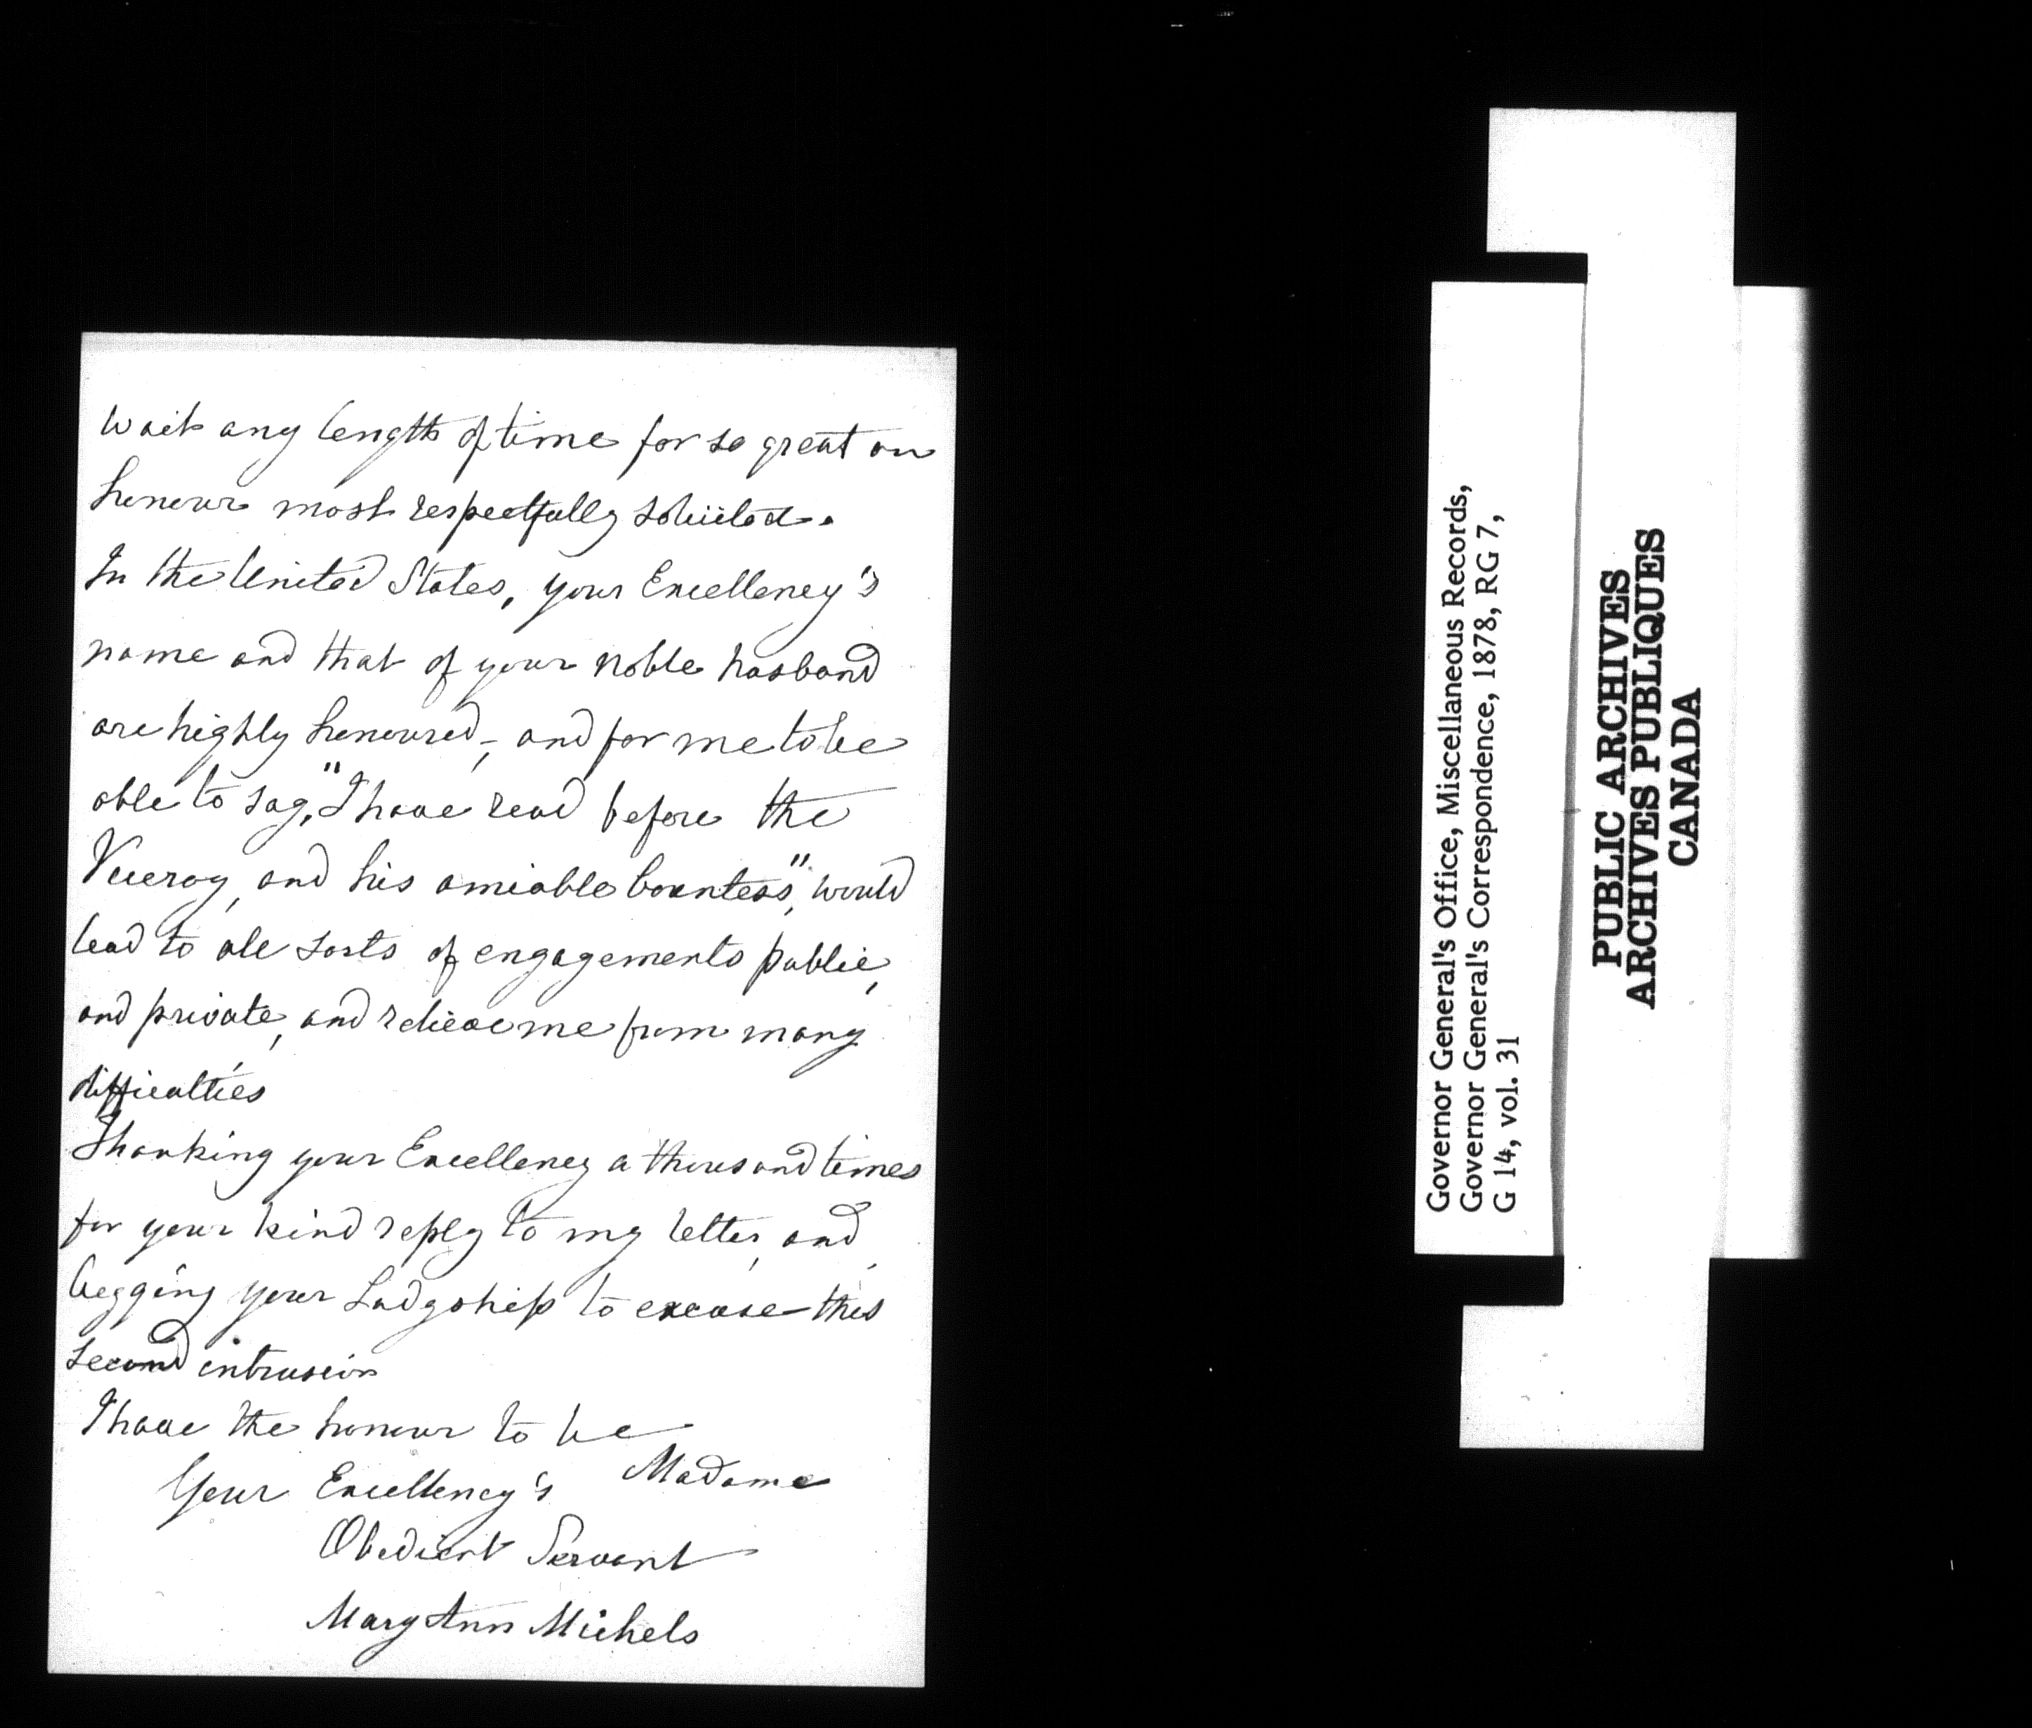 wait any length of time for so great an
honour most respectfully solicited.
In the United States, your Excellency's
name and that of your noble husband
are highly honoured, - and for me to be
able to say, "I have read before the
Viceroy, and his amiable Countess", would
lead to all sorts of engagements public,
and private, and relieve me from many
difficulties
Thanking your Excellency a thousand times
for your kind reply to my letter, and,
begging your Ladyship to excuse this
second intrusion
I have the honour to be
Madame
Your Excellency's
Obedient Servant
Mary Ann Michels
Governor General's Office, Miscellaneous Records,
Governor General's Correspondence, 1878, RG 7,
G 14, vol. 31
PUBLIC ARCHIVES
ARCHIVES PUBLIQUES
CANADA